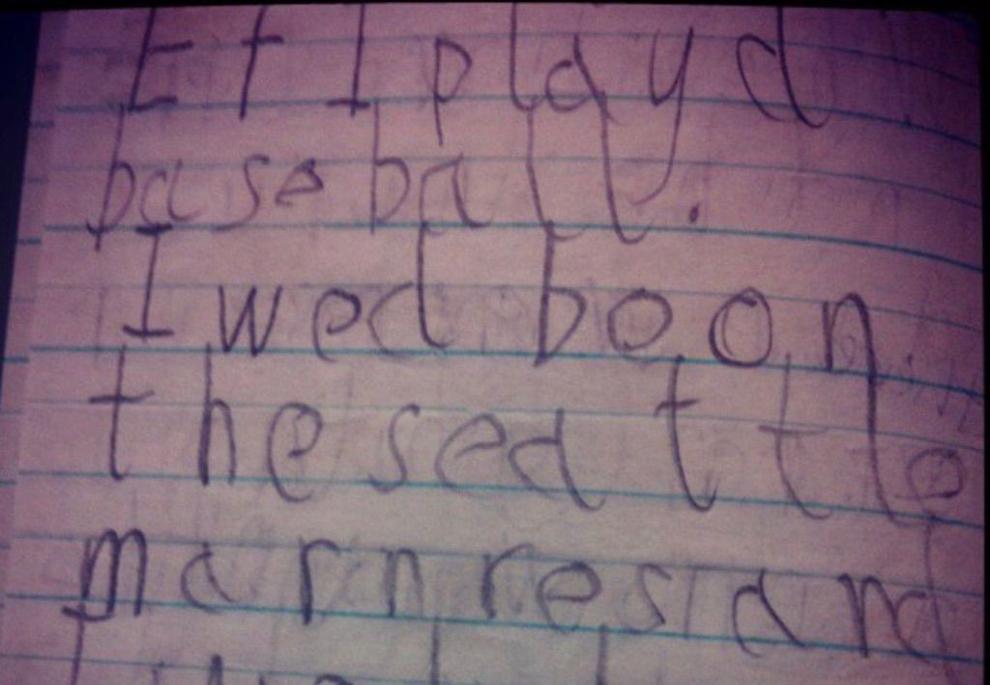 Ef I playd
baseball.
I wed be on
the seattle
marnres and